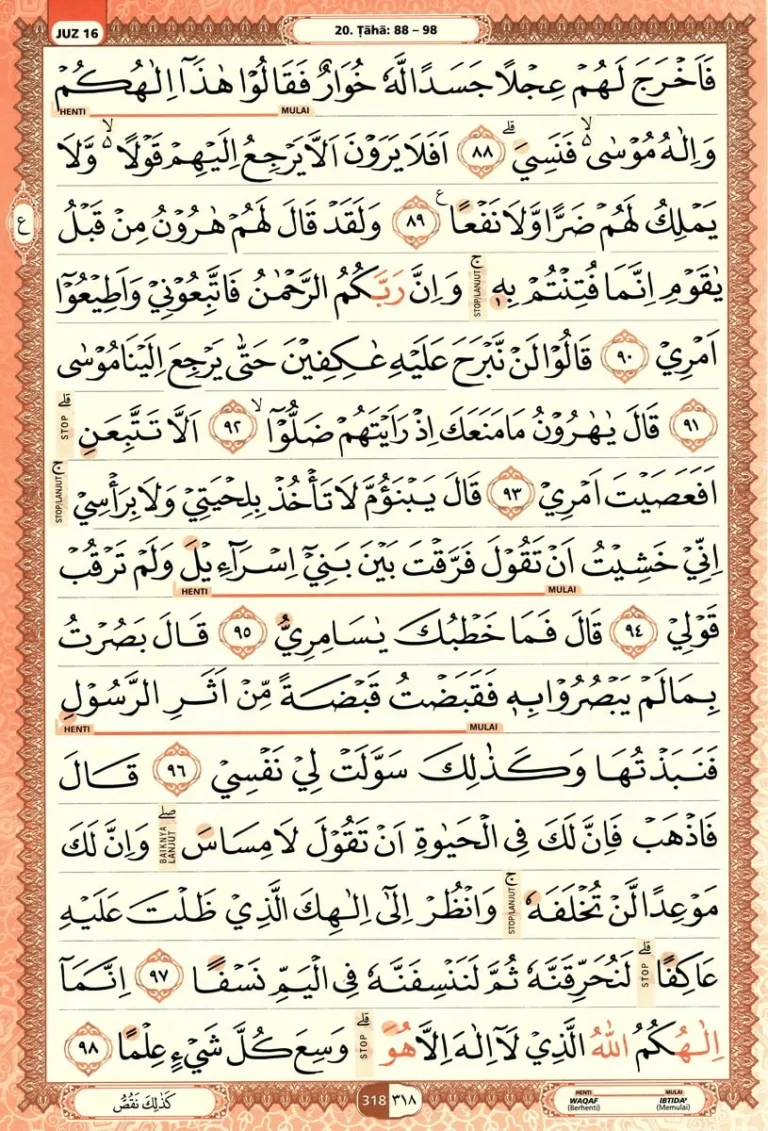 JUZ 16
20. Ṭāhā: 88 – 98
فَاَخْرَجَ لَهُمْ عِجْلًا جَسَدًا لَّهٗ خُوَارٌ فَقَالُوْا هٰذَآ اِلٰهُكُمْ
HENTI MULAI
وَاِلٰهُ مُوْسٰى ەۙ فَنَسِيَ ۗ ٨٨ اَفَلَا يَرَوْنَ اَلَّا يَرْجِعُ اِلَيْهِمْ قَوْلًا ەۙ وَّلَا
يَمْلِكُ لَهُمْ ضَرًّا وَّلَا نَفْعًا ࣖ ٨٩ وَلَقَدْ قَالَ لَهُمْ هٰرُوْنُ مِنْ قَبْلُ
ع
يٰقَوْمِ اِنَّمَا فُتِنْتُمْ بِهٖۚ STOP/LANJUT وَاِنَّ رَبَّكُمُ الرَّحْمٰنُ فَاتَّبِعُوْنِيْ وَاَطِيْعُوْٓا
اَمْرِيْ ٩٠ قَالُوْا لَنْ نَّبْرَحَ عَلَيْهِ عٰكِفِيْنَ حَتّٰى يَرْجِعَ اِلَيْنَا مُوْسٰى
٩١ قَالَ يٰهٰرُوْنُ مَا مَنَعَكَ اِذْ رَاَيْتَهُمْ ضَلُّوْٓا ۙ ٩٢ اَلَّا تَتَّبِعَنِۗ STOP
اَفَعَصَيْتَ اَمْرِيْ ٩٣ قَالَ يَبْنَؤُمَّ لَا تَأْخُذْ بِلِحْيَتِيْ وَلَا بِرَأْسِيْۚ STOP/LANJUT
اِنِّيْ خَشِيْتُ اَنْ تَقُوْلَ فَرَّقْتَ بَيْنَ بَنِيْٓ اِسْرَاۤءِيْلَ وَلَمْ تَرْقُبْ
HENTI MULAI
قَوْلِيْ ٩٤ قَالَ فَمَا خَطْبُكَ يٰسَامِرِيُّ ٩٥ قَالَ بَصُرْتُ
بِمَا لَمْ يَبْصُرُوْا بِهٖ فَقَبَضْتُ قَبْضَةً مِّنْ اَثَرِ الرَّسُوْلِ
HENTI MULAI
فَنَبَذْتُهَا وَكَذٰلِكَ سَوَّلَتْ لِيْ نَفْسِيْ ٩٦ قَالَ
فَاذْهَبْ فَاِنَّ لَكَ فِى الْحَيٰوةِ اَنْ تَقُوْلَ لَا مِسَاسَۖ BAIKNYA LANJUT وَاِنَّ لَكَ
مَوْعِدًا لَّنْ تُخْلَفَهٗۚ STOP/LANJUT وَانْظُرْ اِلٰٓى اِلٰهِكَ الَّذِيْ ظَلْتَ عَلَيْهِ
عَاكِفًاۗ STOP لَنُحَرِّقَنَّهٗ ثُمَّ لَنَنْسِفَنَّهٗ فِى الْيَمِّ نَسْفًا ٩٧ اِنَّمَآ
اِلٰهُكُمُ اللّٰهُ الَّذِيْ لَآ اِلٰهَ اِلَّا هُوَۗ STOP وَسِعَ كُلَّ شَيْءٍ عِلْمًا ٩٨
كَذٰلِكَ نَقُصُّ
318 ٣١٨
HENTI MULAI
WAQAF IBTIDA'
(Berhenti) (Memulai)